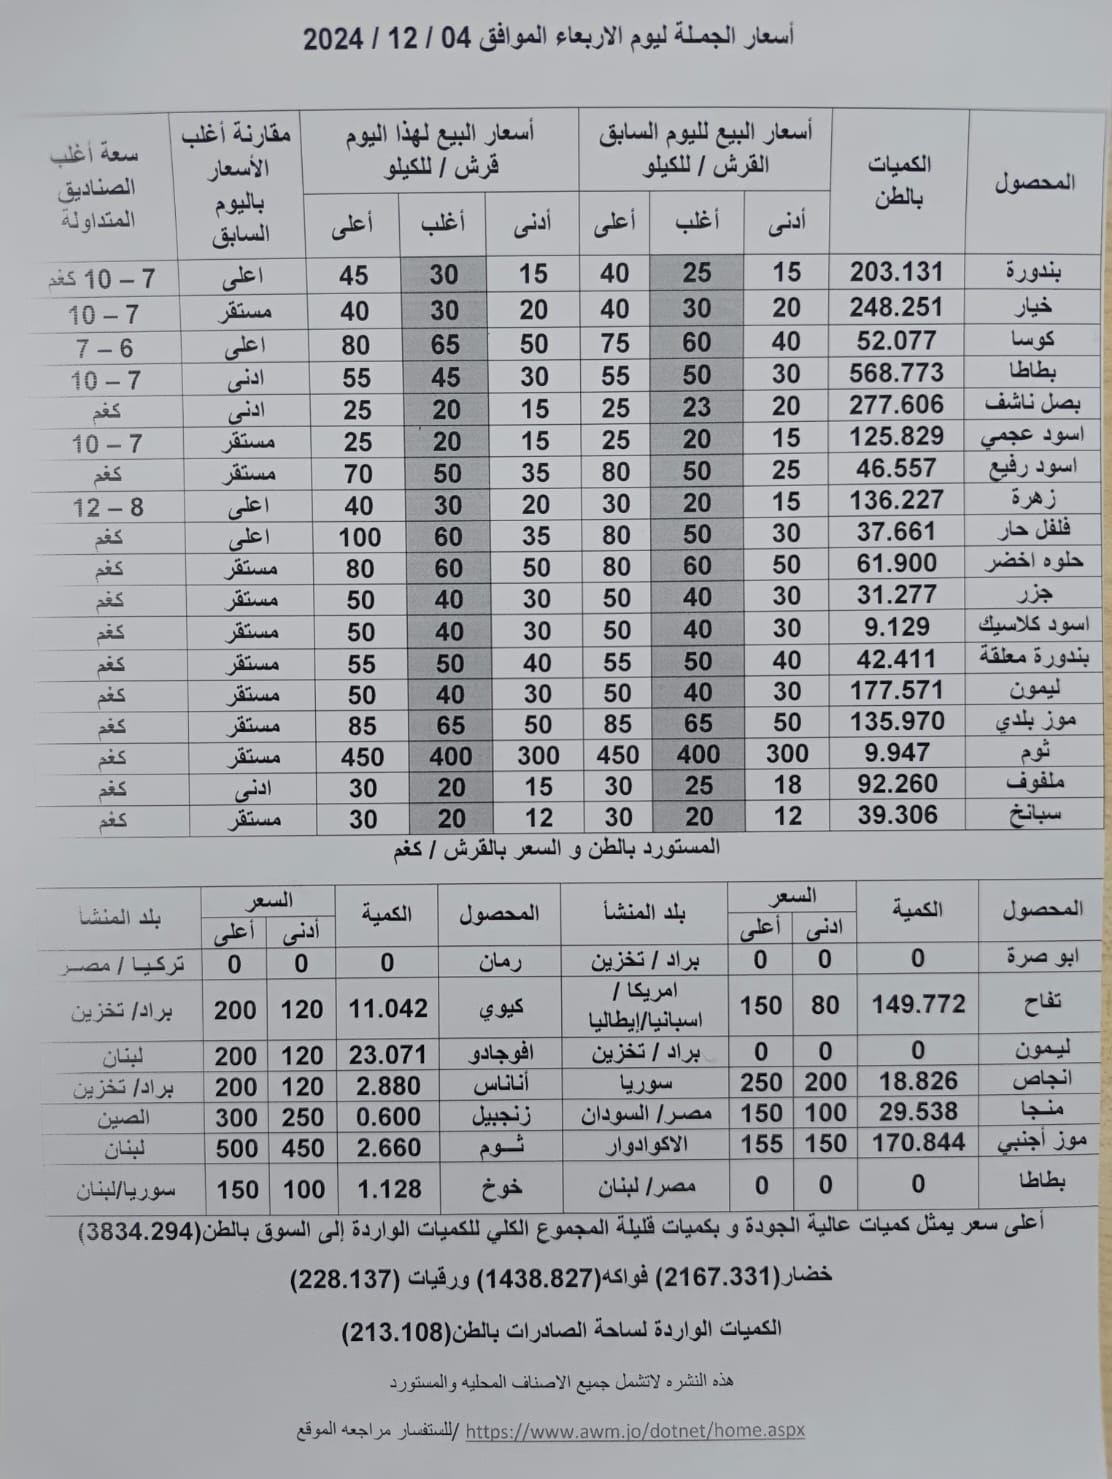 أسعار الجملة ليوم الاربعاء الموافق 04 / 12 / 2024
المحصول الكميات بالطن أسعار البيع لليوم السابق القرش / للكيلو أسعار البيع لهذا اليوم قرش / للكيلو مقارنة أغلب الأسعار باليوم السابق سعة أغلب الصناديق المتداولة
أدنى أغلب أعلى أدنى أغلب أعلى
بندورة 203.131 15 25 40 15 30 45 اعلى 7 – 10 كغم
خيار 248.251 20 30 40 20 30 40 مستقر 7 – 10
كوسا 52.077 40 60 75 50 65 80 اعلى 6 – 7
بطاطا 568.773 30 50 55 30 45 55 ادنى 7 – 10
بصل ناشف 277.606 20 23 25 15 20 25 ادنى كغم
اسود عجمي 125.829 15 20 25 15 20 25 مستقر 7 – 10
اسود رفيع 46.557 25 50 80 35 50 70 مستقر كغم
زهرة 136.227 15 20 30 20 30 40 اعلى 8 – 12
فلفل حار 37.661 30 50 80 35 60 100 اعلى كغم
حلوه اخضر 61.900 50 60 80 50 60 80 مستقر كغم
جزر 31.277 30 40 50 30 40 50 مستقر كغم
اسود كلاسيك 9.129 30 40 50 30 40 50 مستقر كغم
بندورة معلقة 42.411 40 50 55 40 50 55 مستقر كغم
ليمون 177.571 30 40 50 30 40 50 مستقر كغم
موز بلدي 135.970 50 65 85 50 65 85 مستقر كغم
ثوم 9.947 300 400 450 300 400 450 مستقر كغم
ملفوف 92.260 18 25 30 15 20 30 ادنى كغم
سبانخ 39.306 12 20 30 12 20 30 مستقر كغم
المستورد بالطن و السعر بالقرش / كغم
المحصول الكمية السعر بلد المنشأ المحصول الكمية السعر بلد المنشأ
ادنى أعلى أدنى أعلى
ابو صرة 0 0 0 براد / تخزين رمان 0 0 0 تركيا / مصر
تفاح 149.772 80 150 امريكا / اسبانيا/إيطاليا كيوي 11.042 120 200 براد/ تخزين
ليمون 0 0 0 براد / تخزين افوجادو 23.071 120 200 لبنان
انجاص 18.826 200 250 سوريا أناناس 2.880 120 200 براد/ تخزين
منجا 29.538 100 150 مصر/ السودان زنجبيل 0.600 250 300 الصين
موز أجنبي 170.844 150 155 الاكوادوار ثوم 2.660 450 500 لبنان
بطاطا 0 0 0 مصر/ لبنان خوخ 1.128 100 150 سوريا/لبنان
أعلى سعر يمثل كميات عالية الجودة و بكميات قليلة المجموع الكلي للكميات الواردة إلى السوق بالطن(3834.294)
خضار(2167.331) فواكه(1438.827) ورقيات (228.137)
الكميات الواردة لساحة الصادرات بالطن(213.108)
هذه النشره لاتشمل جميع الاصناف المحليه والمستورد
للستفسار مراجعه الموقع/ https://www.awm.jo/dotnet/home.aspx